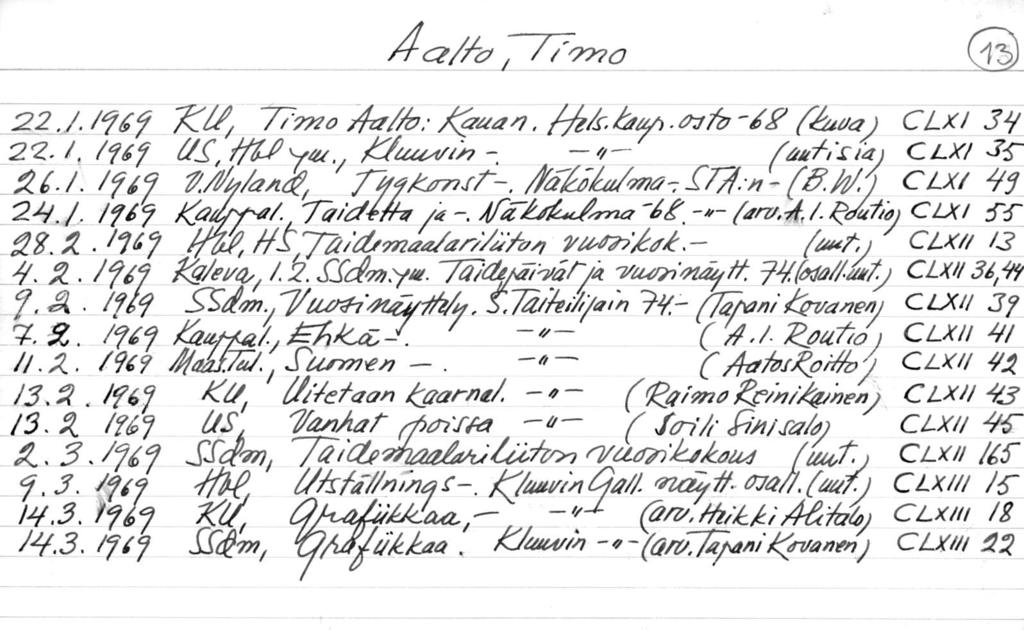 Aalto, Timo
13
22.1.1969 KU, Timo Aalto: Kauan. Hels.kaup.osto-68 (kuva) CLXI 34
22.1.1969 US, Hbl ym., Kluuvin -. -"- (uutisia) CLXI 35
26.1.1969 V.Nyland, Tygkonst-. Näkökulma-. STA:n- (B.W.) CLXI 49
24.1.1969 Kauppal., Taidetta ja -. Näkökulma-68.-"- (arv. A.I.Routio) CLXI 55
28.2.1969 Hbl, HS, Taidemaalariliiton vuosikok.- (uut.) CLXII 13
4.2.1969 Kaleva, 1.2. SSdm.ym. Taidepäivät ja vuosinäytt. 74.(osall.uut.) CLXII 36,44
9.2.1969 SSdm., Vuosinäyttely. S.Taiteilijain 74.- (Tapani Kovanen) CLXII 39
7.2.1969 Kauppal., Ehkä-. -"- (A.I.Routio) CLXII 41
11.2.1969 Maas.Tul., Suomen -. -"- (Aatos Roitto) CLXII 42
13.2.1969 KU, Uitetaan kaarnal. -"- (Raimo Reinikainen) CLXII 43
13.2 1969 US, Vanhat poissa -"- (Soili Sinisalo) CLXII 45
2.3.1969 SSdm, Taidemaalariliiton vuosikokous (uut.) CLXII 165
9.3.1969 Hbl, Utställnings-. Kluuvin Gall. näytt. osall.(uut.) CLXIII 15
14.3.1969 KU, Grafiikkaa,- -"- (arv.Heikki Alitalo) CLXIII 18
14.3.1969 SSdm, Grafiikkaa. Kluuvin -"- (arv.Tapani Kovanen) CLXIII 22